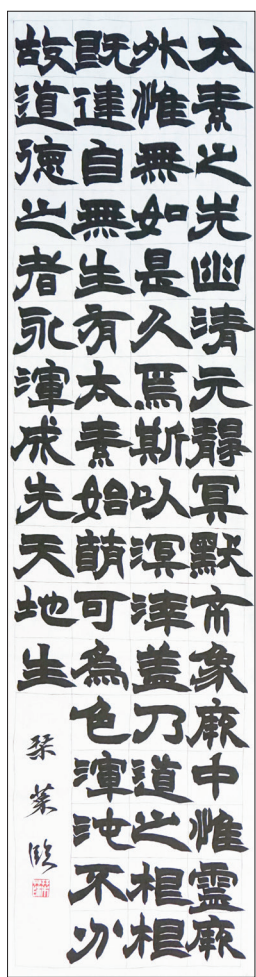 太素之先幽清元靜冥默象厥中惟靈厥
外惟無如是久焉斯以溟涬蓋乃道之根根
既建自無生有太素始萌可為色渾沌不分
故道德之者永渾成先天地生
葉臨